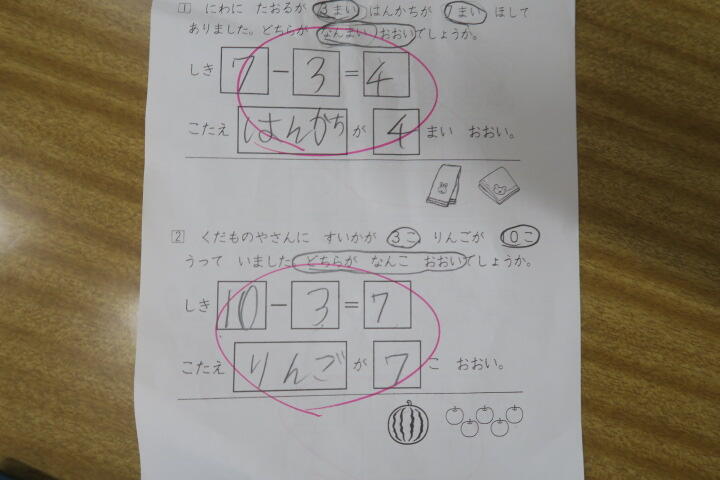 1 にわに たおるが 3まい はんかちが 7まい ほして
ありました。どちらが なんまい おおいでしょうか。
しき 7-3=4
こたえ はんかち が 4 まい おおい。
2 くだものやさんに すいかが 3こ りんごが 10こ
うって いました。どちらが なんこ おおいでしょうか。
しき 10-3=7
こたえ りんご が 7 こ おおい。